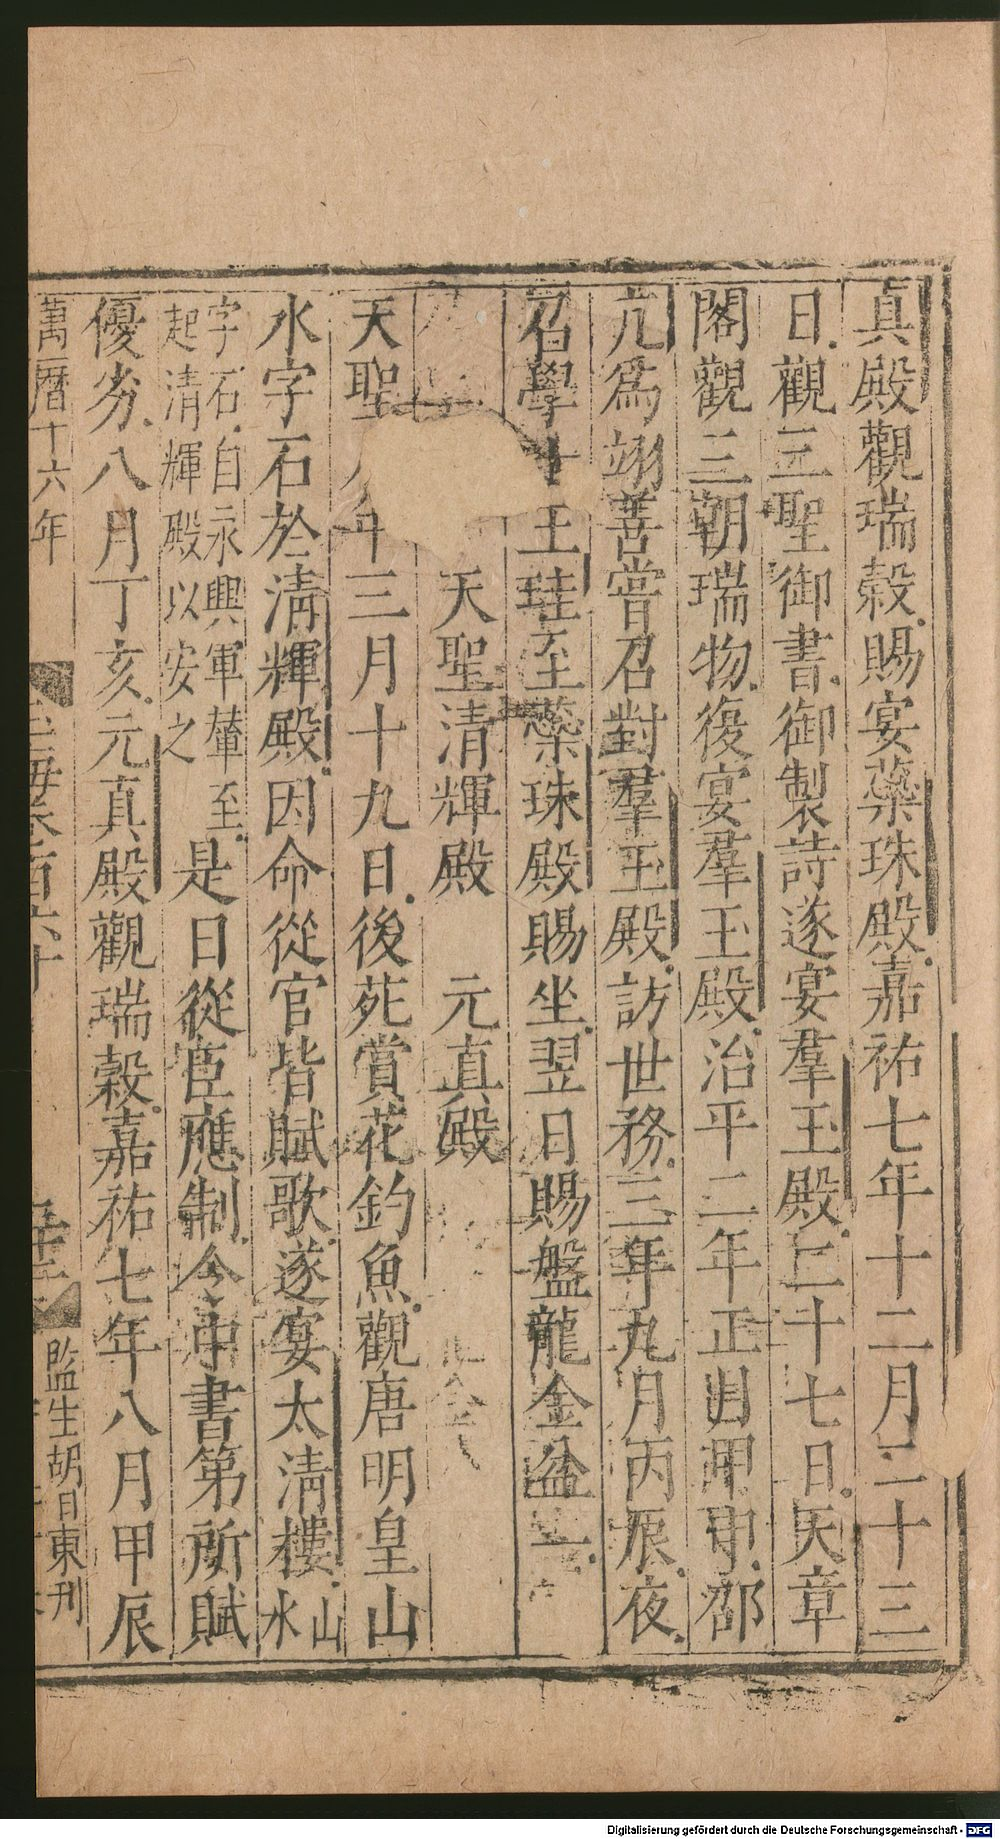 真殿觀瑞穀賜宴蘂珠殿嘉祐七年十二月二十三
日觀三聖御書御製詩遂宴羣玉殿二十七日天章
閣觀三朝瑞物復宴羣玉殿治平二年正月甲申邵
亢爲翊善嘗召對羣玉殿訪世務三年九月丙辰夜
召學士王珪至蘂珠殿賜坐翌日賜盤龍金盆一
天聖清輝殿 元真殿
天聖 年三月十九日後苑賞花釣魚觀唐明皇山
水字石於清輝殿因命從官皆賦歌遂宴太清樓山水
字石自永興軍輦至起清輝殿以安之是日從臣應制令中書第所賦
優劣八月丁亥元真殿觀瑞穀嘉祐七年八月甲辰
萬曆十六年 玉海卷百六十 監生胡日東刊
Digitalisierung gefördert durch die Deutsche Forschungsgemeinschaft - DFG